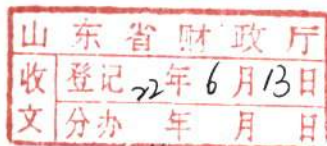 山东省财政厅
收文 登记 22年6月13日
分办 年 月 日